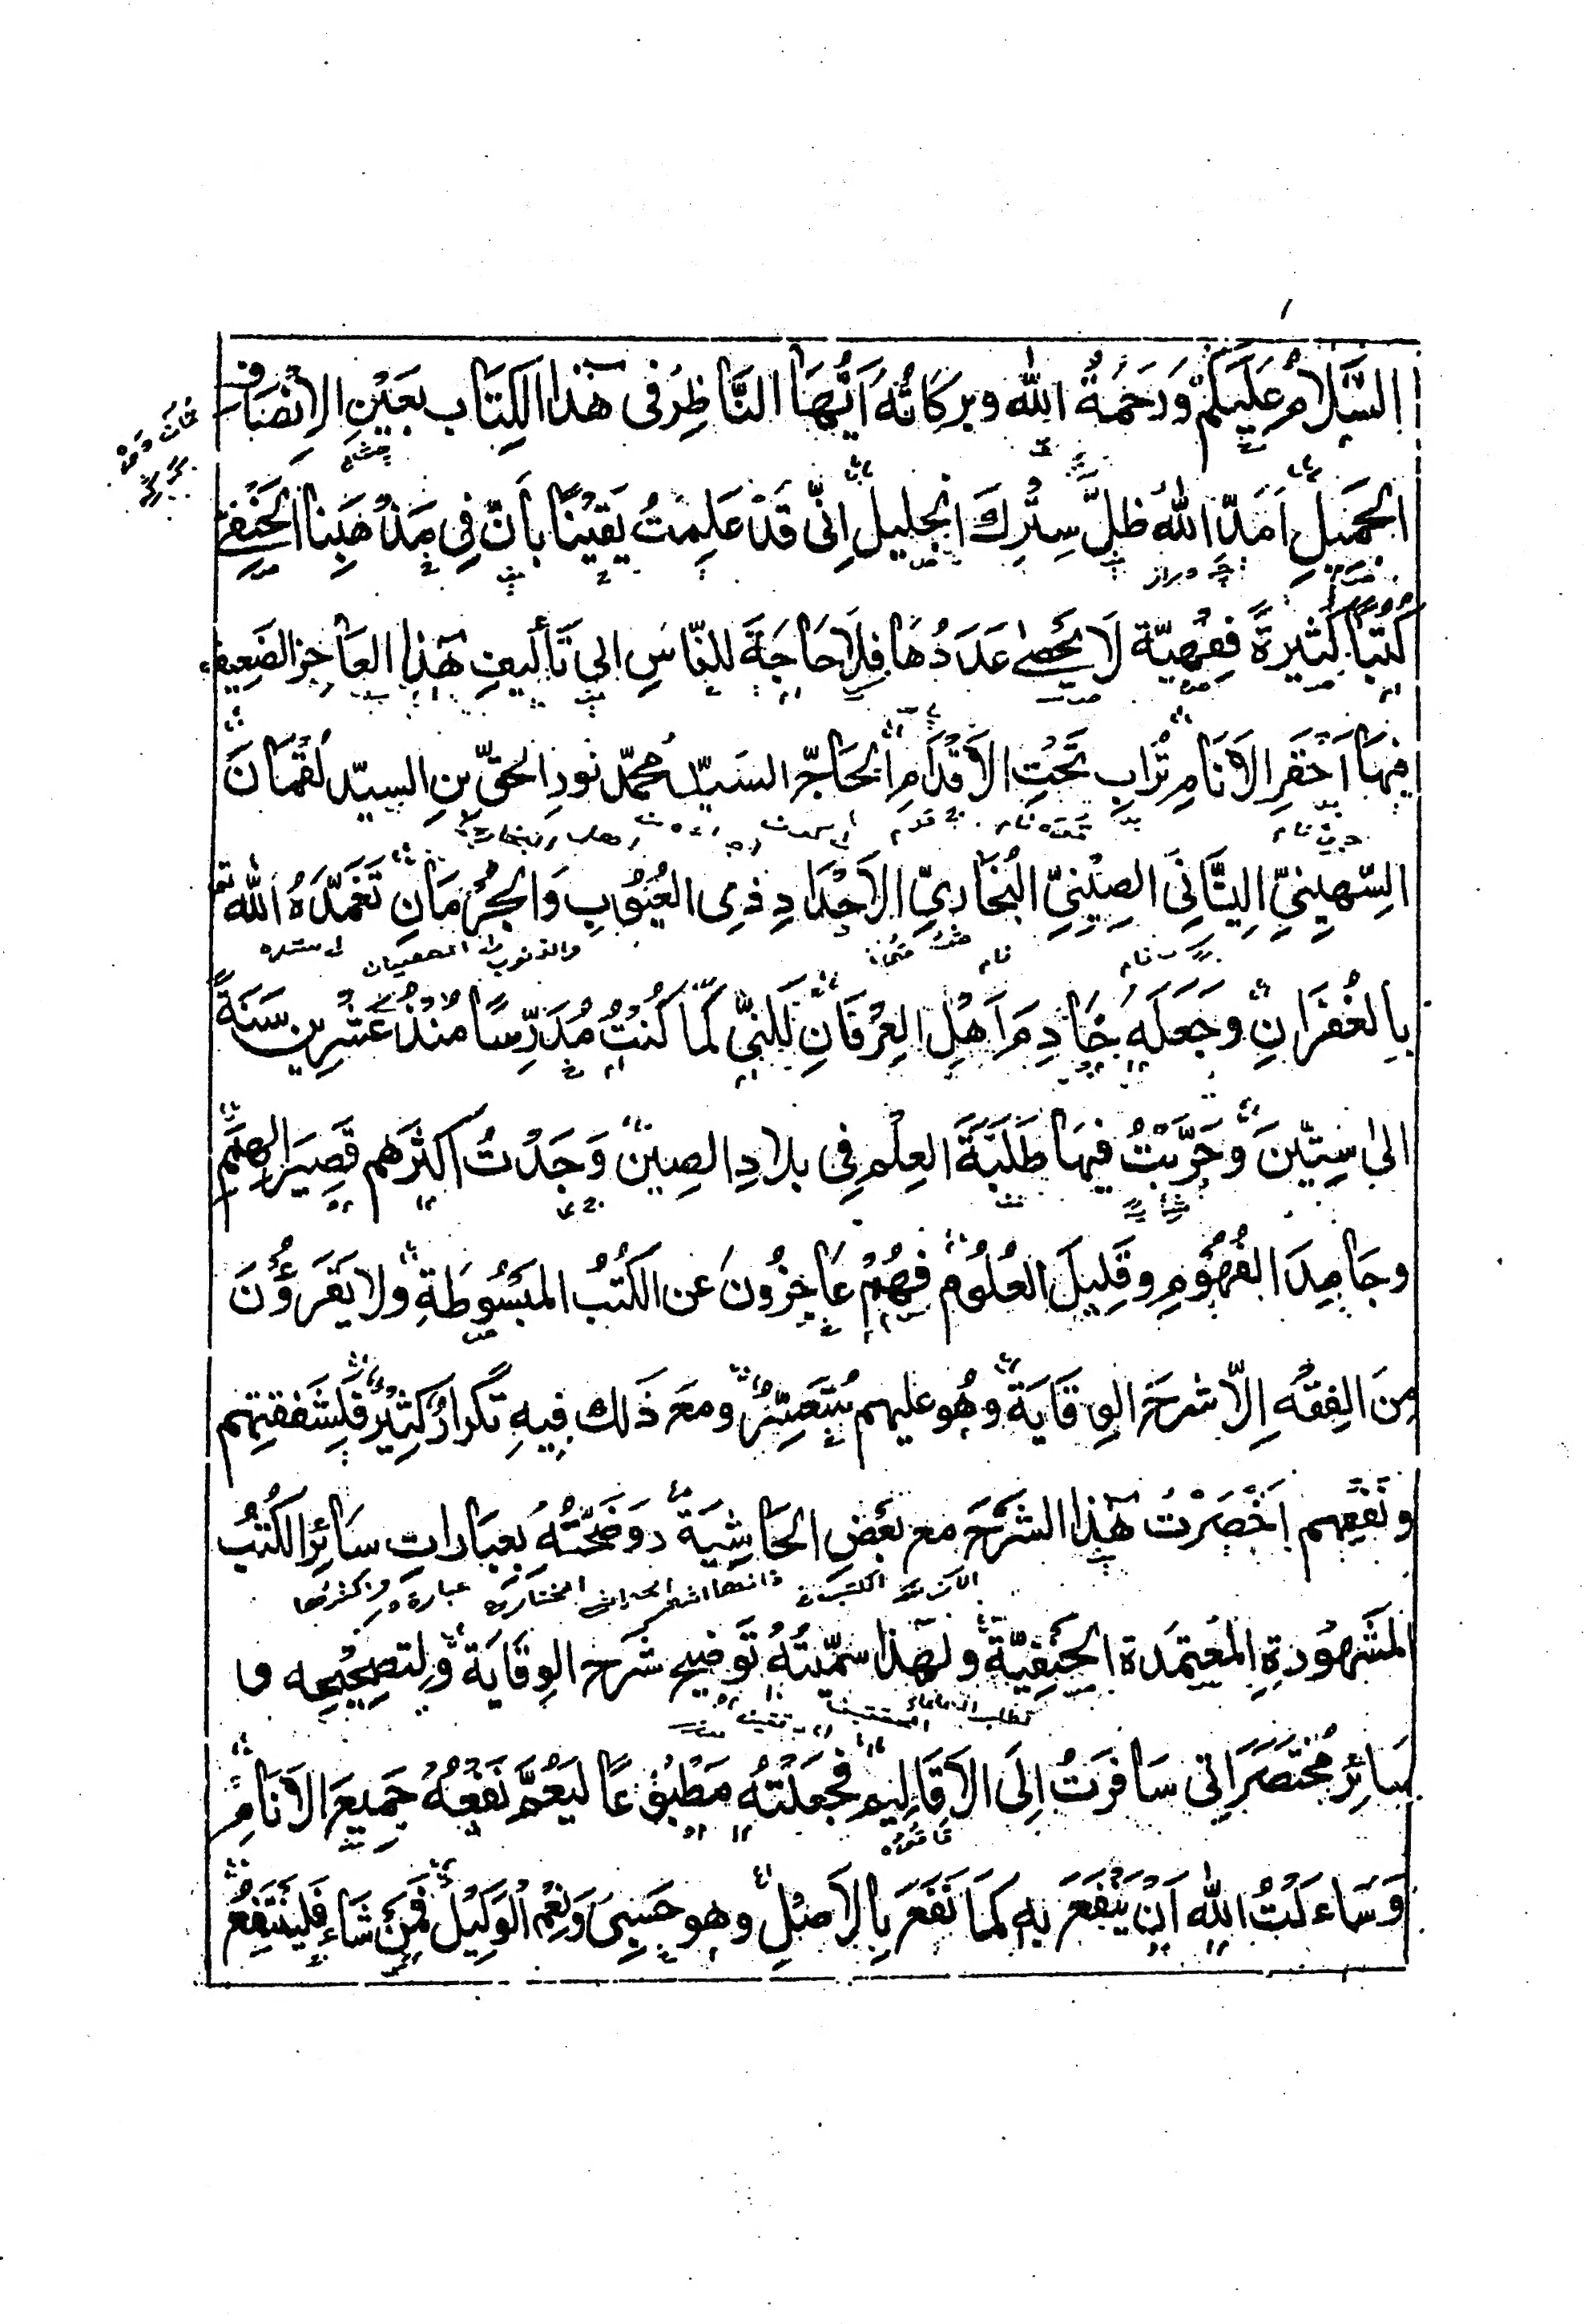 السَّلَامُ عَلَيْكُمْ وَرَحْمَةُ اللّٰه وبركَاتُهُ اَيُّهَا النَّاظِرُ فى هٰذا الكِتَاب بعَيْنِ الاِنْصَاف
الجَمِيلِ اَمَدَّ اللّٰهُ ظلَّ سِتْرِكَ الجليل اِنّى قَدْ عَلِمْتُ يَقِيْنًا بأَنّ فِى مَذْهَبِنا الحَنَفِىّ
كُتُبًا كَثِيرَةً فِقْهِيّة لَا يُحْصٰى عَدَدُهَا فلَا حَاجَةَ للنّاسِ الى تَألِيفِ هٰذا العَاجِز الضَعِيف
فِيهَا اَحْقَرِ الاَنَامِ تُرَابِ تَحْتِ الاَقْدَامِ الحَاجّ السَيّد مُحَمَّد نور الحقّ بنِ السيّد لُقْمَانَ
السّهِينِيّ اليُنَّانِّي الصِيْنِيِّ البُخَارِيِّ الاَجْدَادِ ذِى العُيُوْبِ وَالجُرْمَانِ تَغَمَّدَهُ اللّٰه تع
بِالغُفْرَانِ وجَعَلَهُ خَادِمَ اَهْلِ العِرْفَانِ لٰكنِّى لَمّا كُنْتُ مُدَرِّسًا مُنْذُ عِشْرِين سَنَةً
الىٰ سِتِّيْنَ وَجَرَّبْتُ فِيهَا طَلَبَةَ العِلْمِ فِى بلادِ الصِيْنِ وَجَدْتُ اكثَرَهم قَصِيرَ الهِمَمِ
وجَامِدَ الفُهُوْمِ وقَلِيلَ العُلُوْمِ فهُمْ عَاجِزُونَ عَن الكُتُبِ المَبْسُوطَةِ ولا يَقْرَؤُنَ
مِنَ الفِقْه اِلّا شرحَ الوِقَايَة وهُو عليهم مُتَعَسِّرٌ ومعَ ذَلك فِيهِ تَكرارٌ كَثِيرٌ فلِشَفقتِهم
ونَفْعِهم اخْتَصَرْتُ هٰذا الشَرْحَ مع بعْضِ الحَاشِيَة ووَضَّحْتُهُ بعبَاراتِ سَائِرِ الكُتُبِ
المَشْهُورَةِ المُعْتَمَدَة الحَنَفِيَّة ولهٰذا سمّيتُهُ تَوضيح شَرحِ الوِقَايَة ولِتَصْحِيْحِه و
سَائِرِ مُخْتَصَرَاتى سَافَرْتُ اِلَى الاَقَالِيم فجعَلْتُهُ مَطْبُوْعًا ليَعُمَّ نَفْعُهُ جَمِيعَ الاَنَامِ
وَسَاءَلْتُ اللّٰه اَنْ يَنْفَعَ بِه كَمَا نَفَعَ بِالاَصْلِ وهو حَسْبِىَ وَنِعْمَ الْوَكِيْلُ فَمَنْ شَاءَ فَلْيَنْتَفِعْ